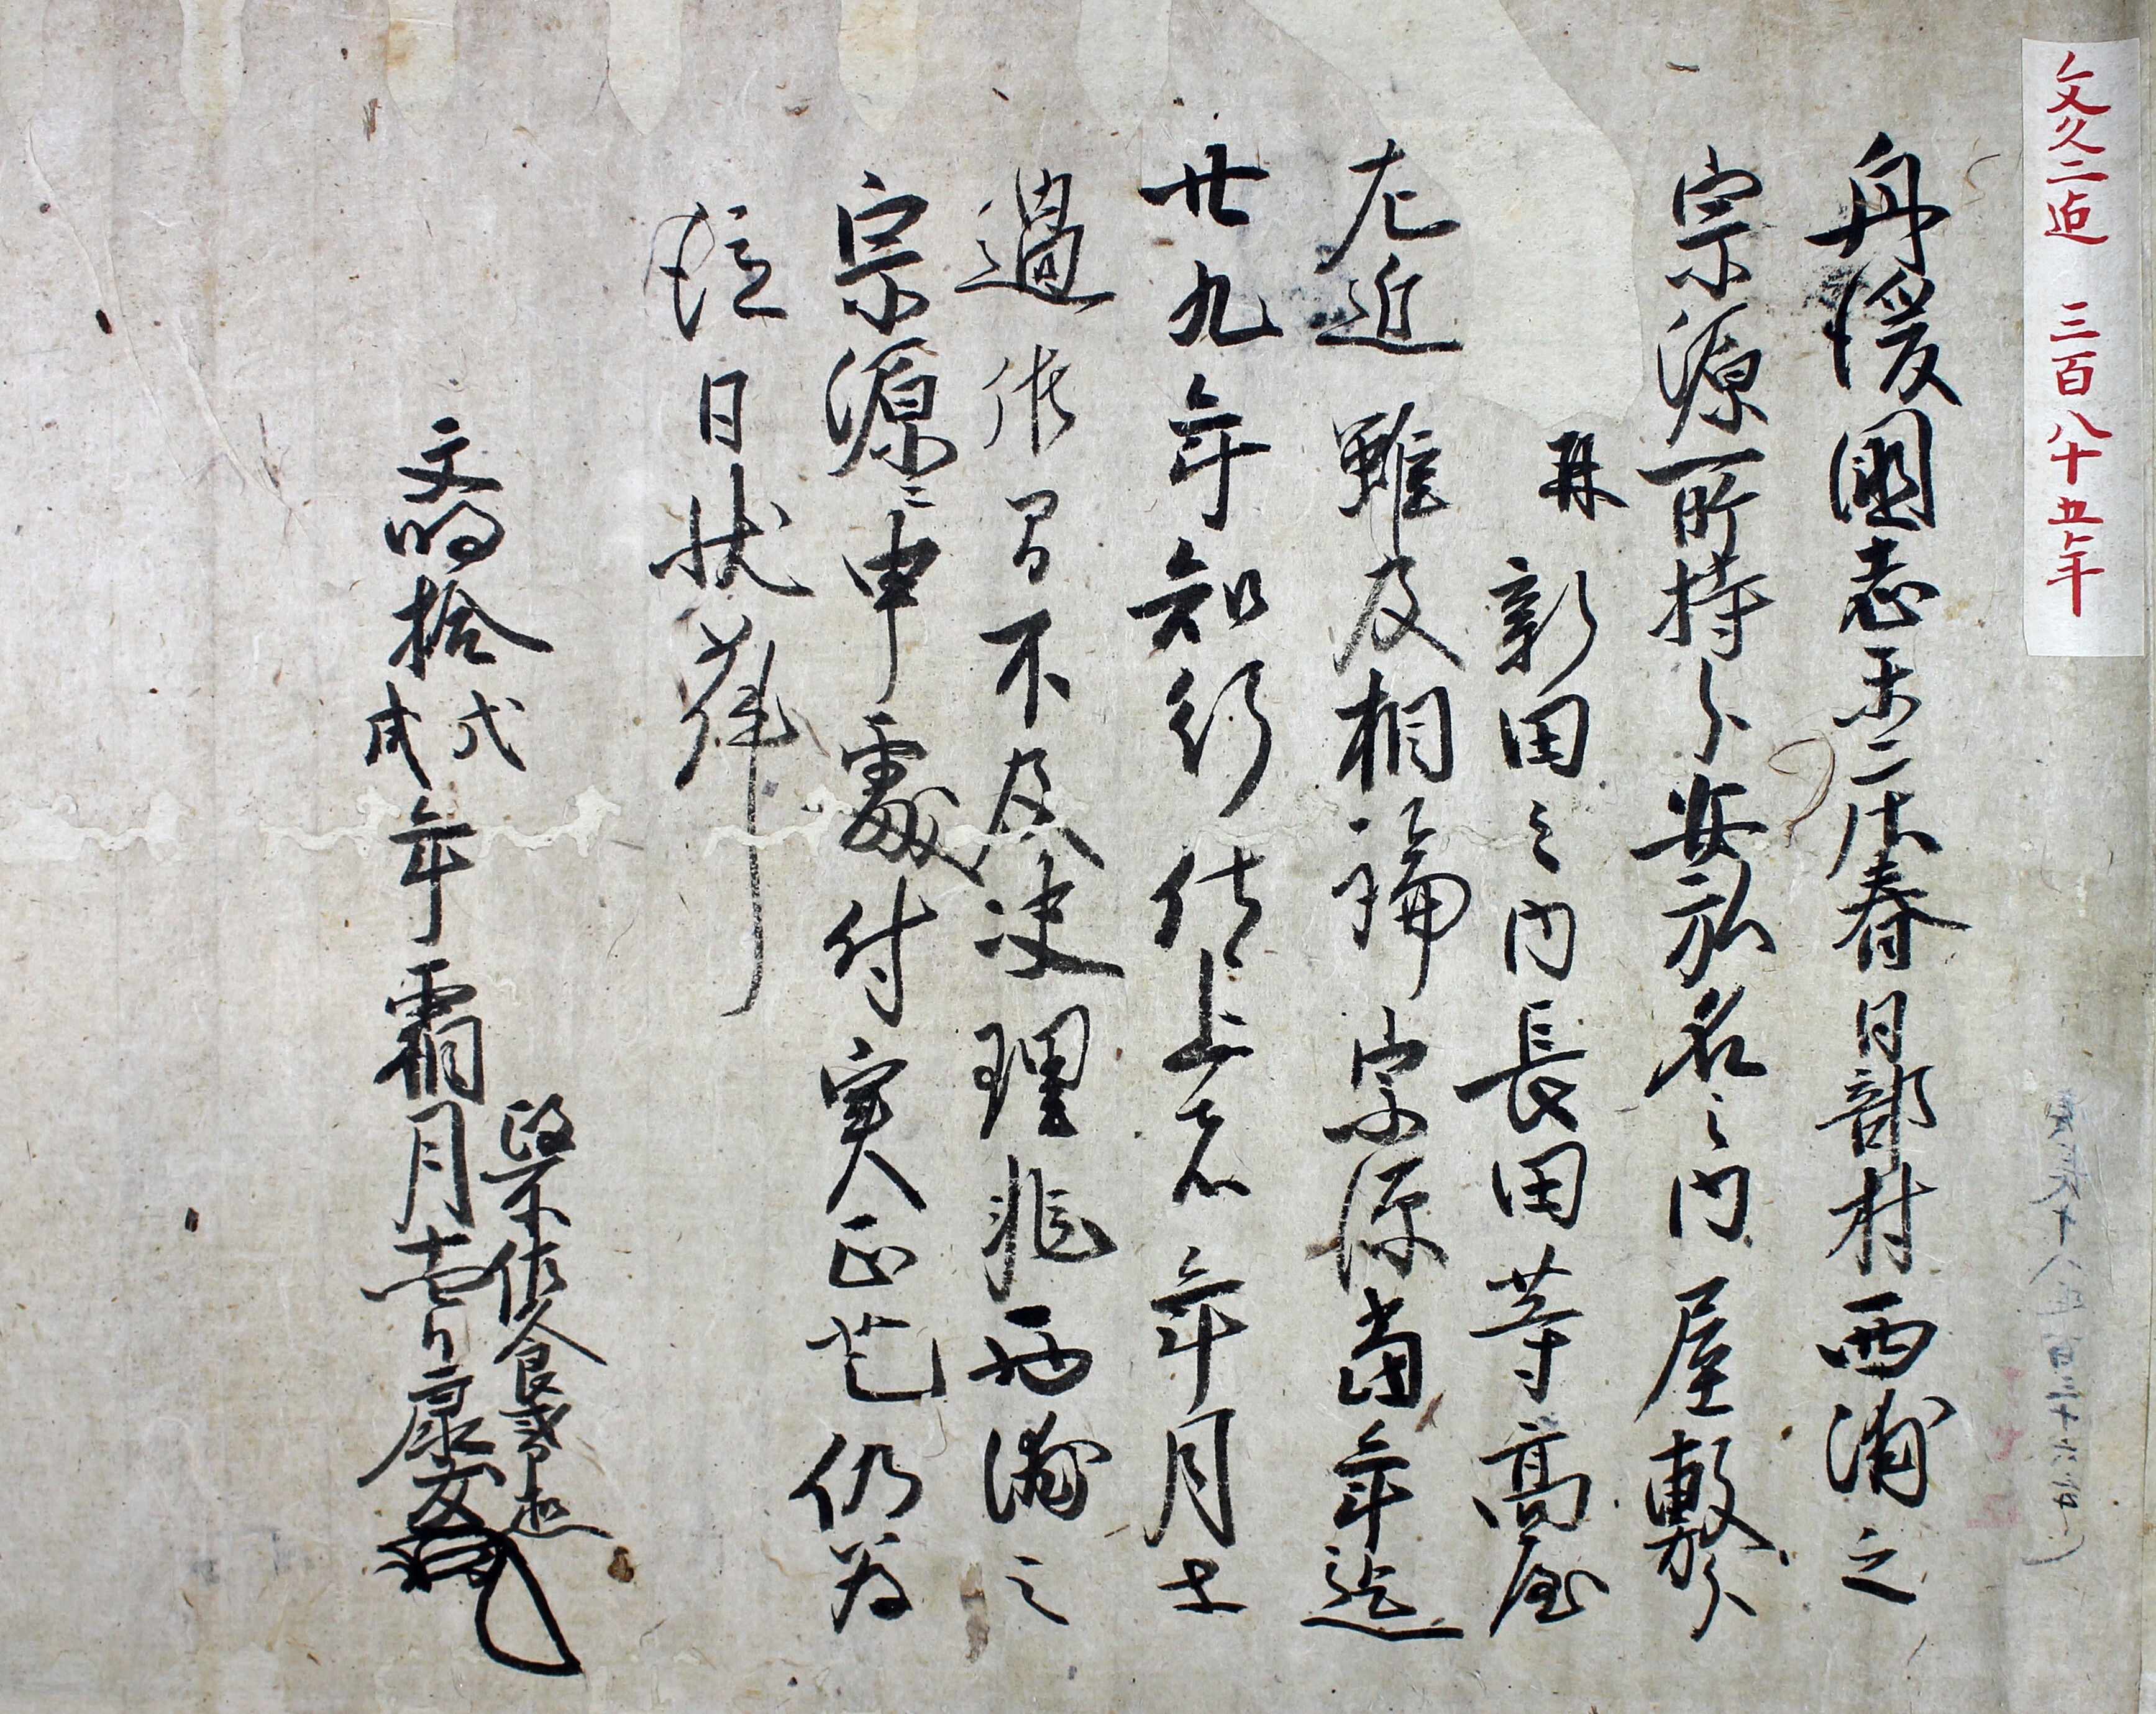 文久二迠 三百八十五年
丹後國志楽庄春日部村西浦之
宗源所持分安弘名之内屋敷分
并新田之内長田等高屋
左近雖及相論宗源當年迄
廿九年知行仕上者年月
過候間不及決理非西浦之
宗源ニ申處付実正也仍為
後日状如件
文明拾戊戌年霜月壹日康友